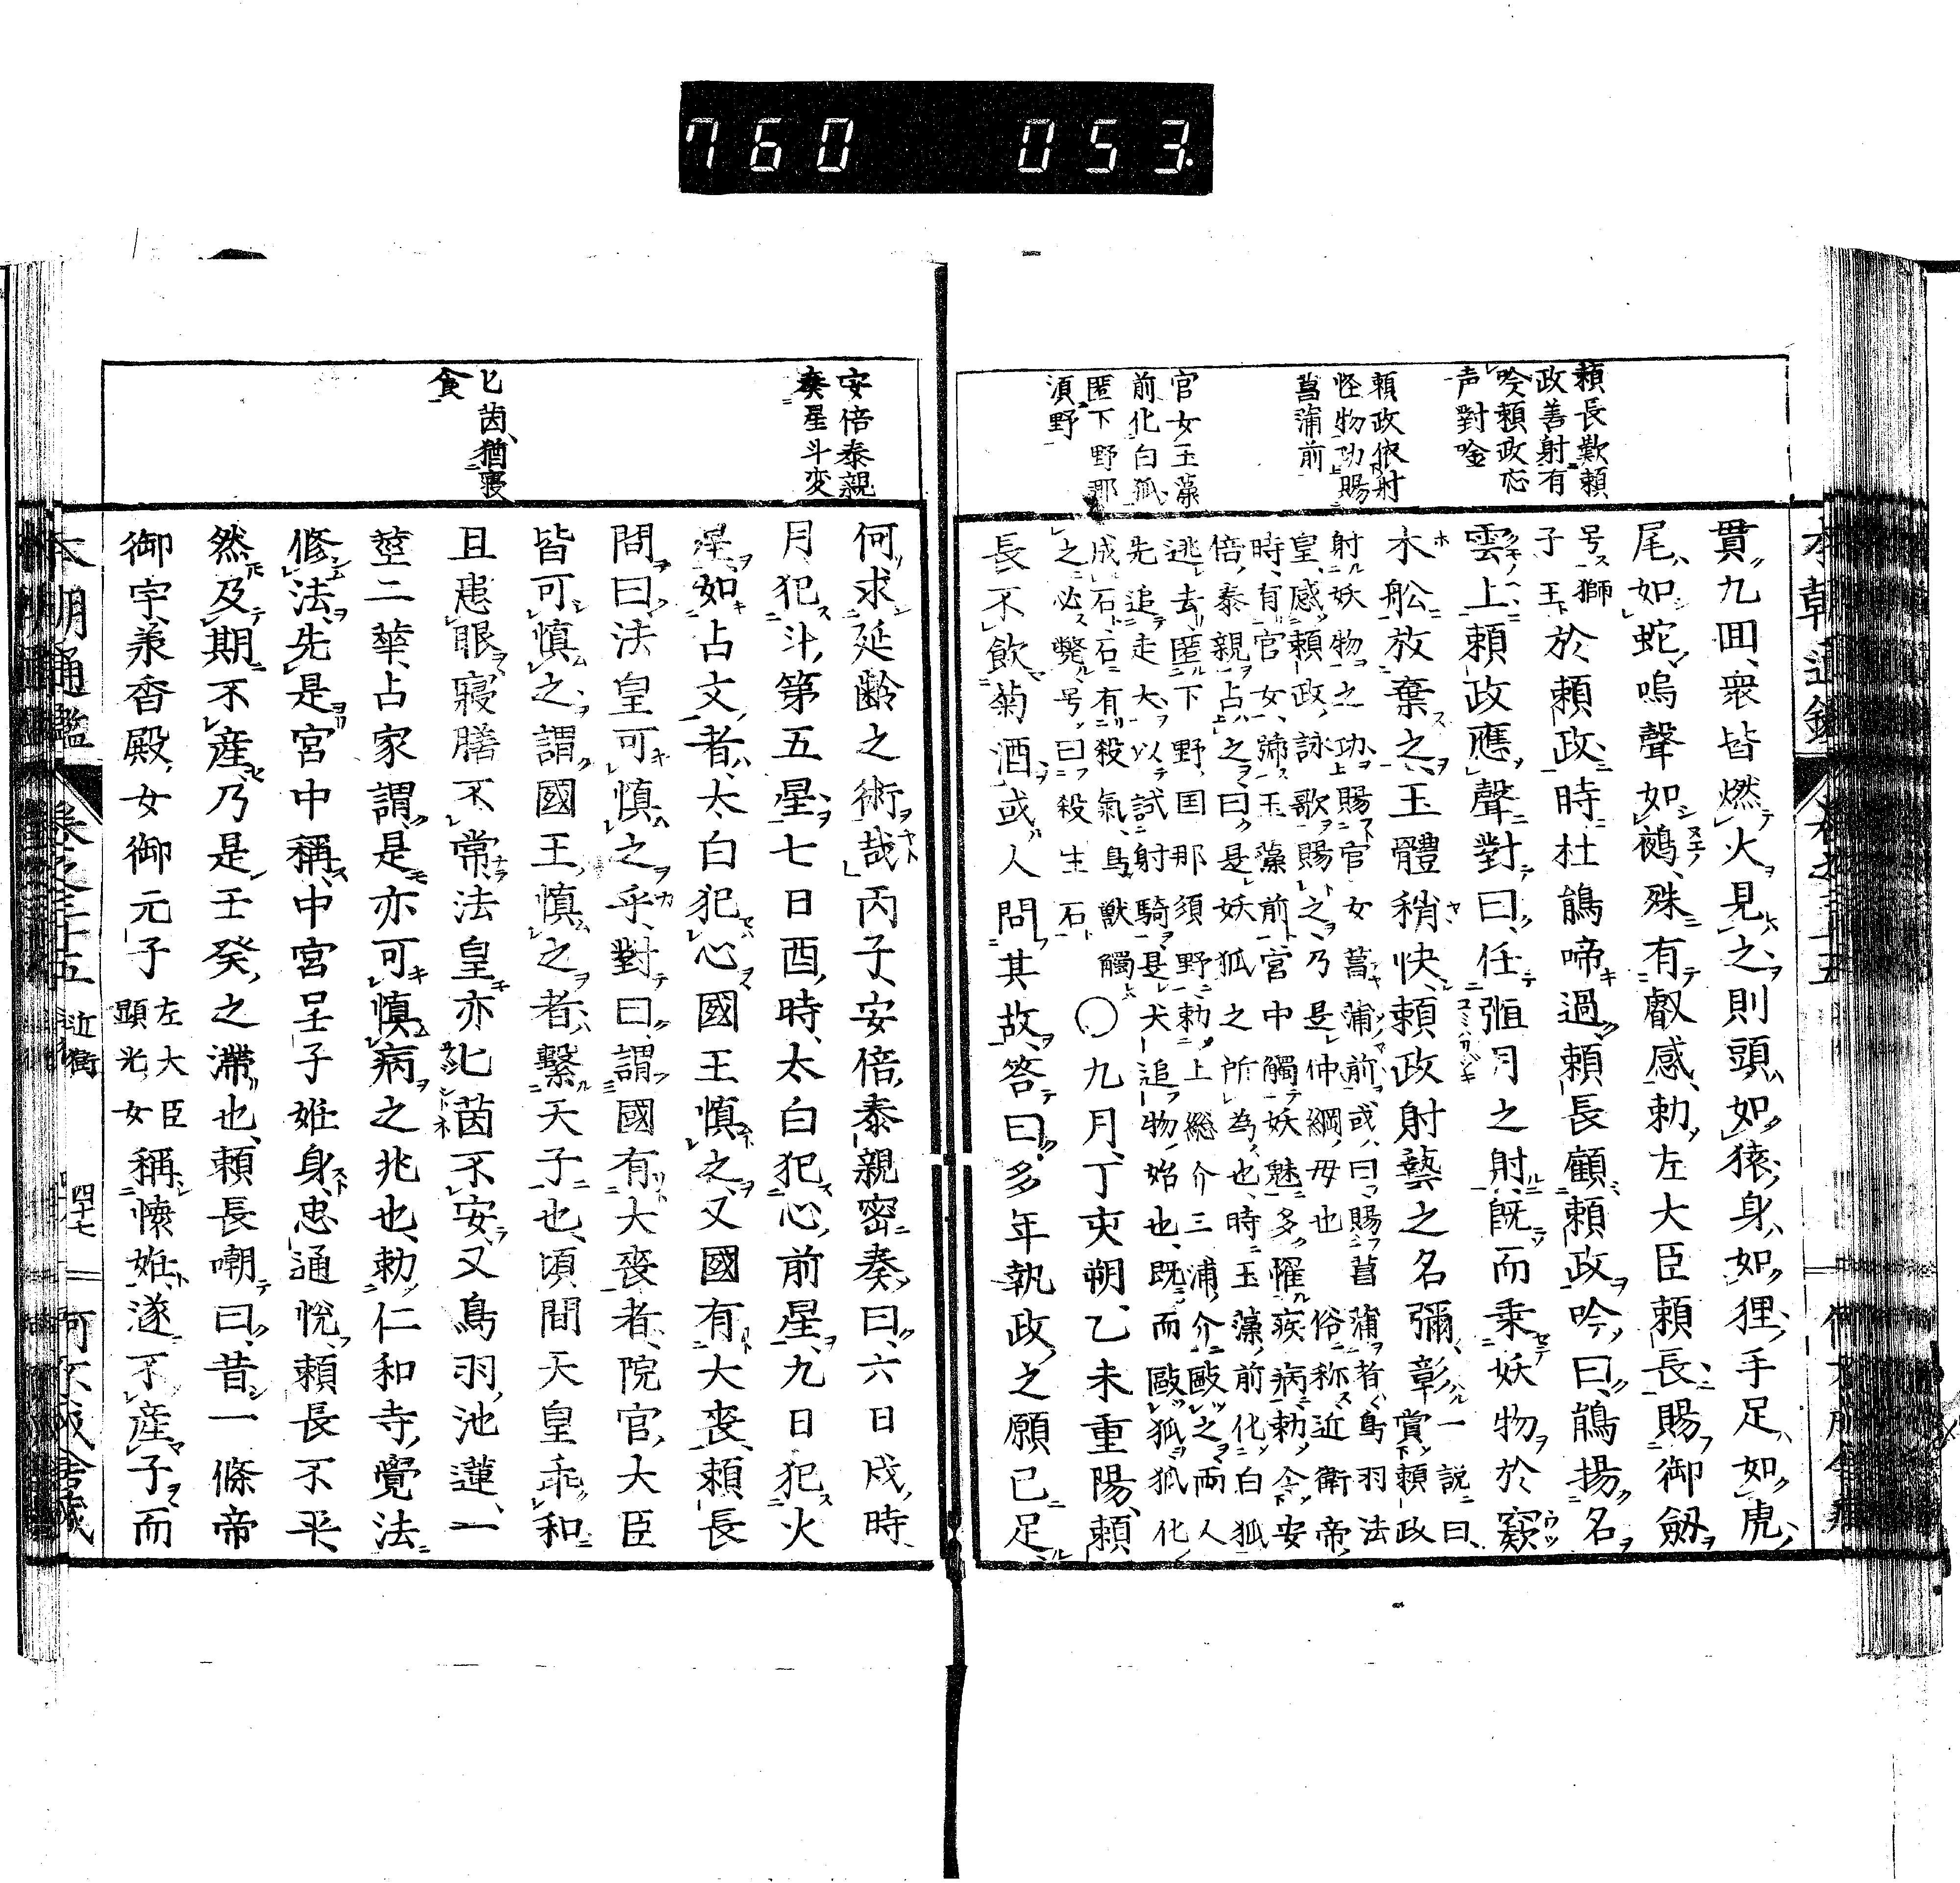 760 053
頼長歎頼
政善射有
吟頼政応
声對唫
頼政依射
怪物功賜
菖蒲前
官女玉藻
前化白狐
匿下野那
湏野
貫九囬、衆皆燃火見之、則頭如猿、身如狸、手足如虎、
尾如蛇、鳴聲如鵺、殊有叡感、勅左大臣頼長、賜御劔
号獅
子王
於頼政、時杜鵑啼過、頼長顧頼政吟曰、鵑揚名
雲上、頼政應聲對曰、任弭月之射、既而乗妖物於窾
木舩放棄之、玉體稍快、頼政射藝之名彌彰
一説曰、
賞頼政
射妖物之功、賜官女菖蒲前、或曰賜菖蒲者、鳥羽法
皇感頼政詠歌賜之、乃是仲綱母也、俗称近衛帝
時、有官女、号玉藻前、宮中觸妖魅、多懼疾病、勅令安
倍泰親占之、曰、是妖狐之所為也、時玉藻前化白狐
逃去、匿下野国那須野、勅上総介三浦介敺之、両人
先追走犬、以試射騎、是犬追物始也、既而敺狐、狐化
成石、石有殺氣、鳥獣觸
之必斃、号曰殺生石
○九月、丁亥朔、乙未重陽、頼
長不飲菊酒、或人問其故、答曰、多年執政之願已足、
安倍泰親
奏星斗変
匕茵猶寝
食
何求延齢之術哉、丙子、安倍泰親密奏曰、六日戌時、
月犯斗第五星、七日酉時、太白犯心前星、九日犯火
星、如占文者、太白犯心、國王慎之、又國有大喪、頼長
問曰、法皇可慎之乎、對曰、謂國有大喪者、院官大臣
皆可慎之、謂國王慎之者、繫天子也、頃間天皇乖和
且患眼寝膳不常、法皇亦匕茵不安、又鳥羽池蓮、一
莖二華、占家謂是亦可慎病之兆也、勅仁和寺覺法
修法、先是宮中稱中宮呈子姙身、忠通悅、頼長不平、
然及期不産、乃是壬癸之滞也、頼長嘲曰、昔一條帝
御宇、承香殿女御元子
左大臣
顕光女
稱懐姙、遂不産子、而
本朝通鑑
巻之三十五
近衛
四十七